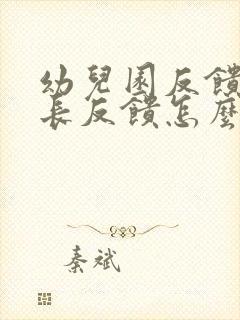 幼兒園反饋
長反饋怎麼
秦斌